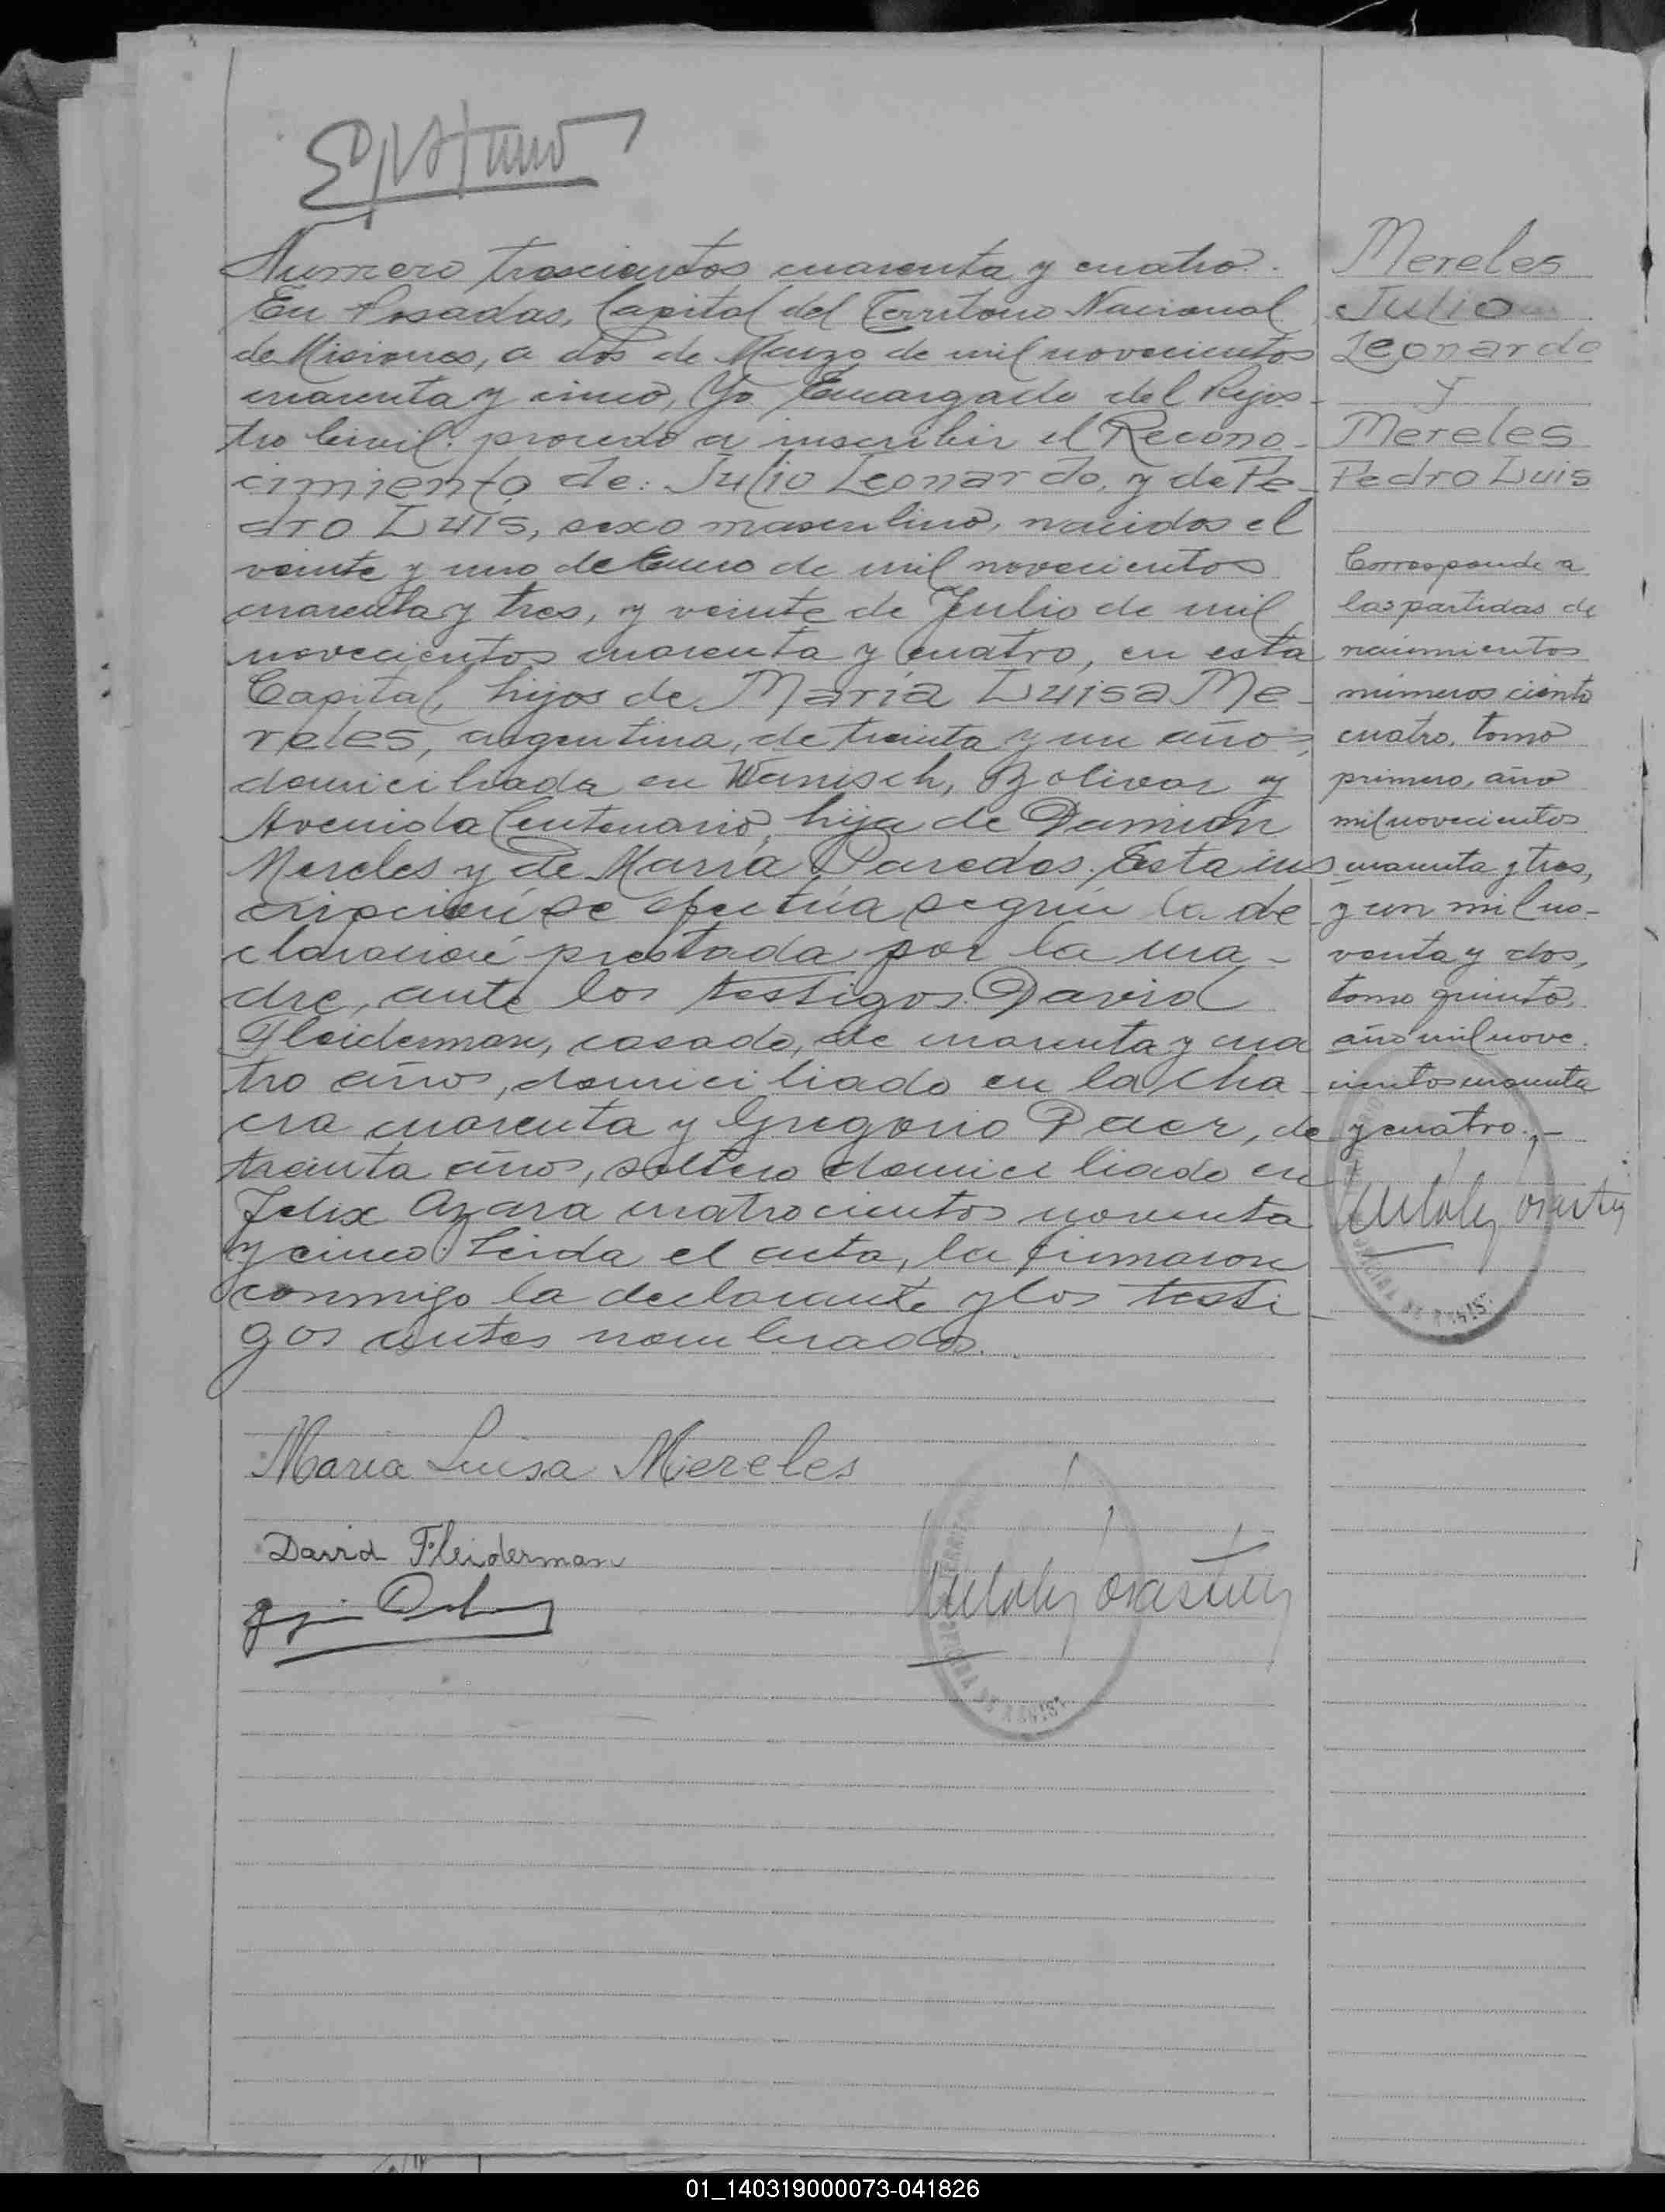 Numero trescientos cuarenta y cuatro.
En Posadas, Capital del Territorio Nacional
de Misiones, a dos de Marzo de mil novecientos
cuarenta y cinco, Yo Encargado del Regis-
tro Civil. procedo a inscribir el Recono-
cimiento de: Julio Leonardo, y de Pe-
dro Luis, sexo masculino, nacidos el
veinte y uno de Enero de mil novecientos
cuarenta y tres, y veinte de Julio de mil
novecientos cuarenta y cuatro, en esta
Capital, hijos de María Luisa Me-
reles, argentina, de treinta y un años,
domiciliada en Wanisch, Bolivar y
Avenida Centenario, hija de Damián
Mereles y de María Paredes. Esta ins
cripción se efectúa según la de
claración prestada por la ma-
dre, ante los testigos David
Fleiderman, casado, de cuarenta y cua
tro años, domiciliado en la cha-
cra cuarenta y Gregorio, de
treinta años, soltero domiciliado en
Felix Azara cuatrocientos noventa
y cinco. Leida el acta, la firmaron
conmigo la declarante y los testi-
gos antes nombrados.
Maria Luisa Mereles
David Fleiderman
Mereles
Julio
Leonardo
y
Mereles
Pedro Luis
Corresponde a
las partidas de
nacimientos
números ciento
cuatro, tomo
primero, año
mil novecientos
cuarenta y tres,
y un mil no-
venta y dos,
tomo quinto,
año mil nove
cientos cuarenta
y cuatro.-
01_140319000073-041826